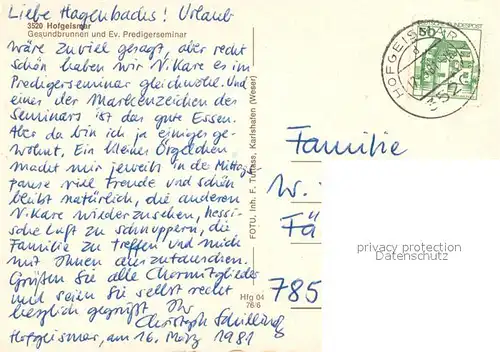 Liebe Hagenbachs! Urlaub
3520 Hofgeismar
Gesundbrunnen und Ev. Predigerseminar
wäre zuviel gesagt, aber recht
schön haben wir Vikare es im
Predigerseminar gleichwohl. Und
eines der Markenzeichen des
Seminars ist das gute Essen.
Aber da bin ich ja einiges ge-
wohnt. Ein kleines Orgelchen
macht mir jeweils in der Mittags-
pause viel Freude und schön
bleibt natürlich, die anderen
Vikare wiederzusehen, hessi-
sche Luft zu schnuppern, die
Familie zu treffen und mich
mit Ihnen auszutauschen.
Grüßen Sie alle Chormitglieder
und seien Sie selbst recht
herzlich gegrüßt Ihr
Christoph Schilling
Hofgeismar, am 16. März 1981
Hfg 04
76/6
FOTU, Inh. F. Karlshafen (Weser)
HOFGEISMAR
DEUTSCHE BUNDESPOST
Familie
W.
Fä
785
privacy protection
oldthing.de